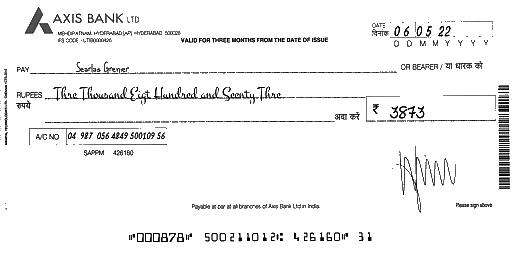 AXIS BANK LTD
MEHDIPATNAM, HYDERABAD [AP] - HYDERABAD 500028
IFS CODE - UTIB0000426
VALID FOR THREE MONTHS FROM THE DATE OF ISSUE
DATE
दिनांक 06 05 22
D D M M Y Y Y Y
PAY Searlas Grener OR BEARER / या धारक को
RUPEES Thre Thousand Eigt Hundred and Seenty Thre
रुपये अदा करें ₹ 3873
A/C NO 04 987 056 4849 500109 56
SAPPM 426160
Payable at par at all branches of Axis Bank Ltd in India.
Please sign above
"000878" 500211012: 426160" 31